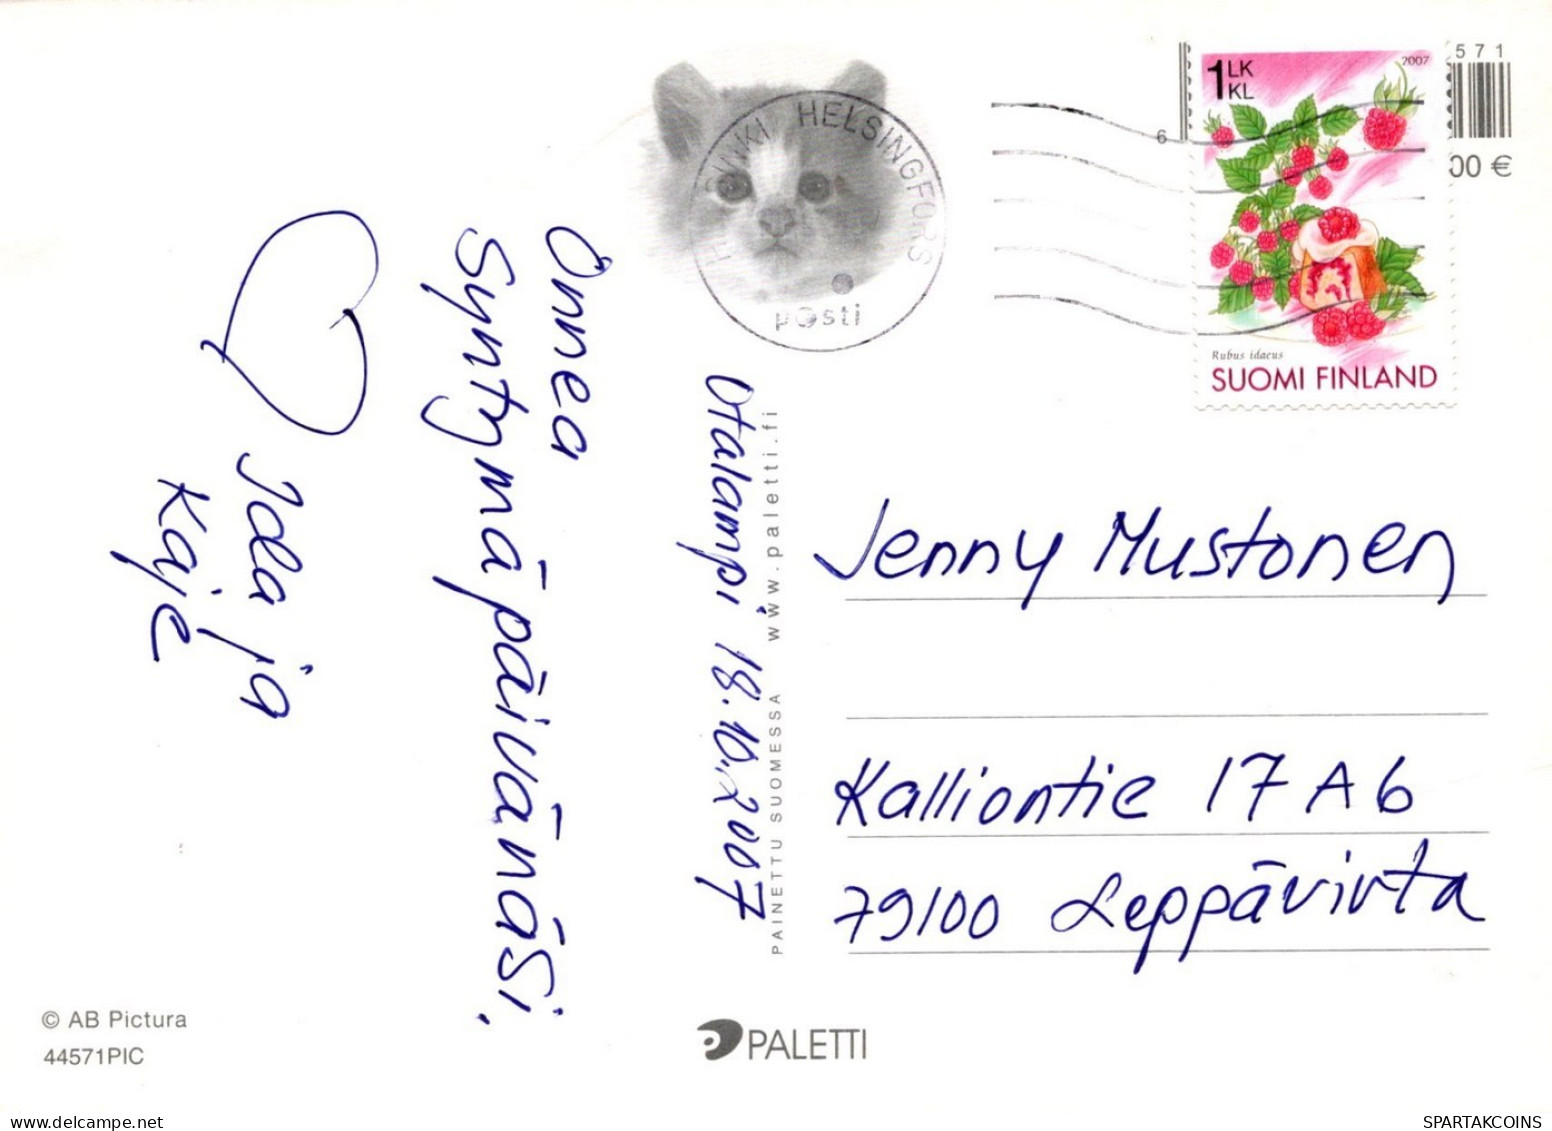 Otalampi 18.10.2007
Onnea
Syntymäpäivänäsi,
Iola ja
Kaje
Jenny Mustonen
Kalliontie 17 A 6
79100 Leppävirta
HELSINKI HELSINGFORS
posti
1 LK
KL
2007
Rubus idaeus
SUOMI FINLAND
571
6
00 €
PAINETTU SUOMESSA www.paletti.fi
© AB Pictura
44571PIC
PALETTI
www.delcampe.net
SPARTAKCOINS